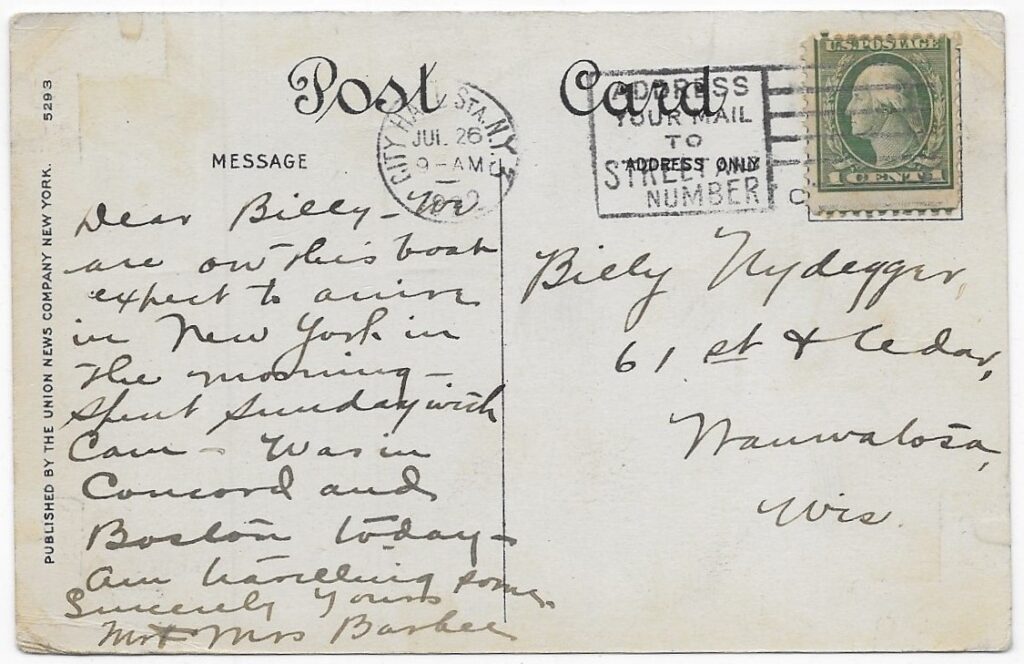 Post Card
MESSAGE
ADDRESS ONLY
CITY HALL STA. N.Y.
JUL 26
9-AM
ADDRESS
YOUR MAIL
TO
STREET AND
NUMBER
U.S. POSTAGE
1 CENT 1
PUBLISHED BY THE UNION NEWS COMPANY NEW YORK. 5293
Dear Billy - We
are on this boat
expect to arrive
in New York in
the morning -
spent Sunday with
Cam - Was in
Concord and
Boston today -
am travelling some.
Sincerely yours
Mr + Mrs Barbee
Billy Nydegger,
61 st & Cedar,
Wauwatosa,
Wis.